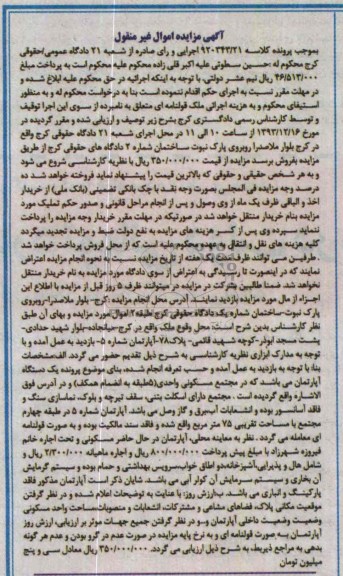 آگهی مزایده اموال غیر منقول
بموجب پرونده کلاسه ۹۲۰۳۴۳/۲۱ اجرایی و رای صادره از شعبه ۲۱ دادگاه عمومی/حقوقی
کرج محکوم له :حسین سطوتی علیه اکبر قلی زاده محکوم علیه محکوم است به پرداخت مبلغ
۴۶/۵۱۳/۰۰۰ ریال نیم عشر دولتی، با توجه به اینکه اجرائیه در حق محکوم علیه ابلاغ شده و
در مهلت مقرر نسبت به اجرای حکم اقدام ننموده است بنا به درخواست محکوم له و به منظور
استیفای محکوم و به هزینه اجرائی ملک قولنامه ای متعلق به نامبرده از سوی این اجرا توقیف
و توسط کارشناس رسمی دادگستری کرج بشرح زیر توصیف و ارزیابی شده و مقرر گردیده در
مورخ ۱۳۹۳/۱۲/۱۶ از ساعت ۱۰ الی ۱۱ در محل اجرای شعبه ۲۱ دادگاه حقوقی کرج واقع
در کرج بلوار ملاصدرا روبروی پارک نبوت ساختمان شماره ۲ دادگاه های حقوقی کرج از طریق
مزایده بفروش برسد مزایده از قیمت ۳۵۰/۰۰۰/۰۰۰ ریال با نظریه کارشناسی شروع می شود
و به هر شخص حقیقی و حقوقی که بالاترین قیمت را پیشنهاد نماید فروخته خواهد شد ده
درصد وجه مزایده فی المجلس بصورت وجه نقد یا چک بانکی تضمینی (بانک ملی) از خریدار
اخذ و الباقی ظرف یک ماه از وی وصول و پس از انجام مراحل قانونی و صدور حکم تملیک مورد
مزایده بنام خریدار منتقل خواهد شد در صورتیکه در مهلت مقرر خریدار وجه مزایده را پرداخت
ننماید سپرده وی پس از کسر هزینه های مزایده به نفع دولت ضبط و مزایده تجدید میگردد
کلیه هزینه های نقل و انتقال به عهده محکوم علیه است که از محل فروش پرداخت خواهد شد
.طرفین می توانند ظرف مدت یک هفته از تاریخ مزایده نسبت به نحوه انجام مزایده اعتراض
نمایند که در اینصورت تا رسیدگی به اعتراض از سوی دادگاه مورد مزایده به نام خریدار منتقل
نخواهد شد. ضمنا طالبین شرکت در مزایده میتوانند ظرف ۵ روز قبل از مزایده با اطلاع این
اجراء از مال مورد مزایده بازدید نمایند. آدرس محل انجام مزایده :کرج- بلوار ملاصدرا-روبروی
پارک نبوت-ساختمان شماره یک دادگاه حقوقی کرج طبقه۲:اموال مورد مزایده و بهای آن طبق
نظر کارشناس بدین شرح است: محل وقوع ملک واقع در کرج-میانجاده-بلوار شهید حدادی-
پشت مسجد ابوذر-کوچه شهید قائمی- پلاک۷۸-آپارتمان شماره ۵- بازدید به عمل آمده و با
توجه به مدارک ابرازی نظریه کارشناسی به شرح ذیل تقدیم حضور می گردد. الف:مشخصات
بنا: با توجه به بازدید به عمل آمده و حسب تعرفه انجام شده، بنای موضوع پرونده یک دستگاه
آپارتمان می باشد که در مجتمع مسکونی واحدی(۵طبقه به انضمام همکف) و در آدرس فوق
الاشاره واقع گردیده است . مجتمع دارای اسکلت بتنی، سقف تیرچه و بلوک، نماسازی سنگ و
فاقد آسانسور بوده و انشعابات آب،برق و گاز وصل می باشد. آپارتمان شماره ۵ در طبقه چهارم
مجتمع با مساحت تقریبی ۷۵ متر مربع واقع شده و فاقد سند مالکیت بوده و به صورت قولنامه
ای معامله می گردد . نظر به معاینه محلی، آپارتمان در حال حاضر مسکونی و تحت اجاره خانم
فیروزه شهرزاد با مبلغ پیش پرداخت ۸۰/۰۰۰/۰۰۰ ریال و اجاره ماهیانه ۲/۳۰۰/۰۰۰ ریال و
شامل هال و پذیرایی،آشپزخانه،دو اطاق خواب،سرویس بهداشتی و حمام بوده و سیستم گرمایش
آن بخاری و سیستم سرمایش آن کولر آبی می باشد. شایان ذکر است آپارتمان مذکور فاقد
پارکینگ و انباری می باشد. ب)ارزش روز: با عنایت به توضیحات اعلام شده و در نظر گرفتن
موقعیت مکانی پلاک، فضاهای مشاعی و مشترکات، انشعابات و منصوبات،مساحت واحد مسکونی
وضعیت وضعیت داخلی آپارتمان و...و در نظر گرفتن جمیع جهات موثر بر ارزیابی، ارزش روز
آپارتمان به صورت قولنامه ای و به نرخ پایه مزایده در صورت عدم در گرو بودن و عدم هر گونه
بدهی به مراجع ذیربط، به شرح ذیل ارزیابی می گردد. ۳۵۰/۰۰۰/۰۰۰ ریال معادل سی و پنج
میلیون تومان